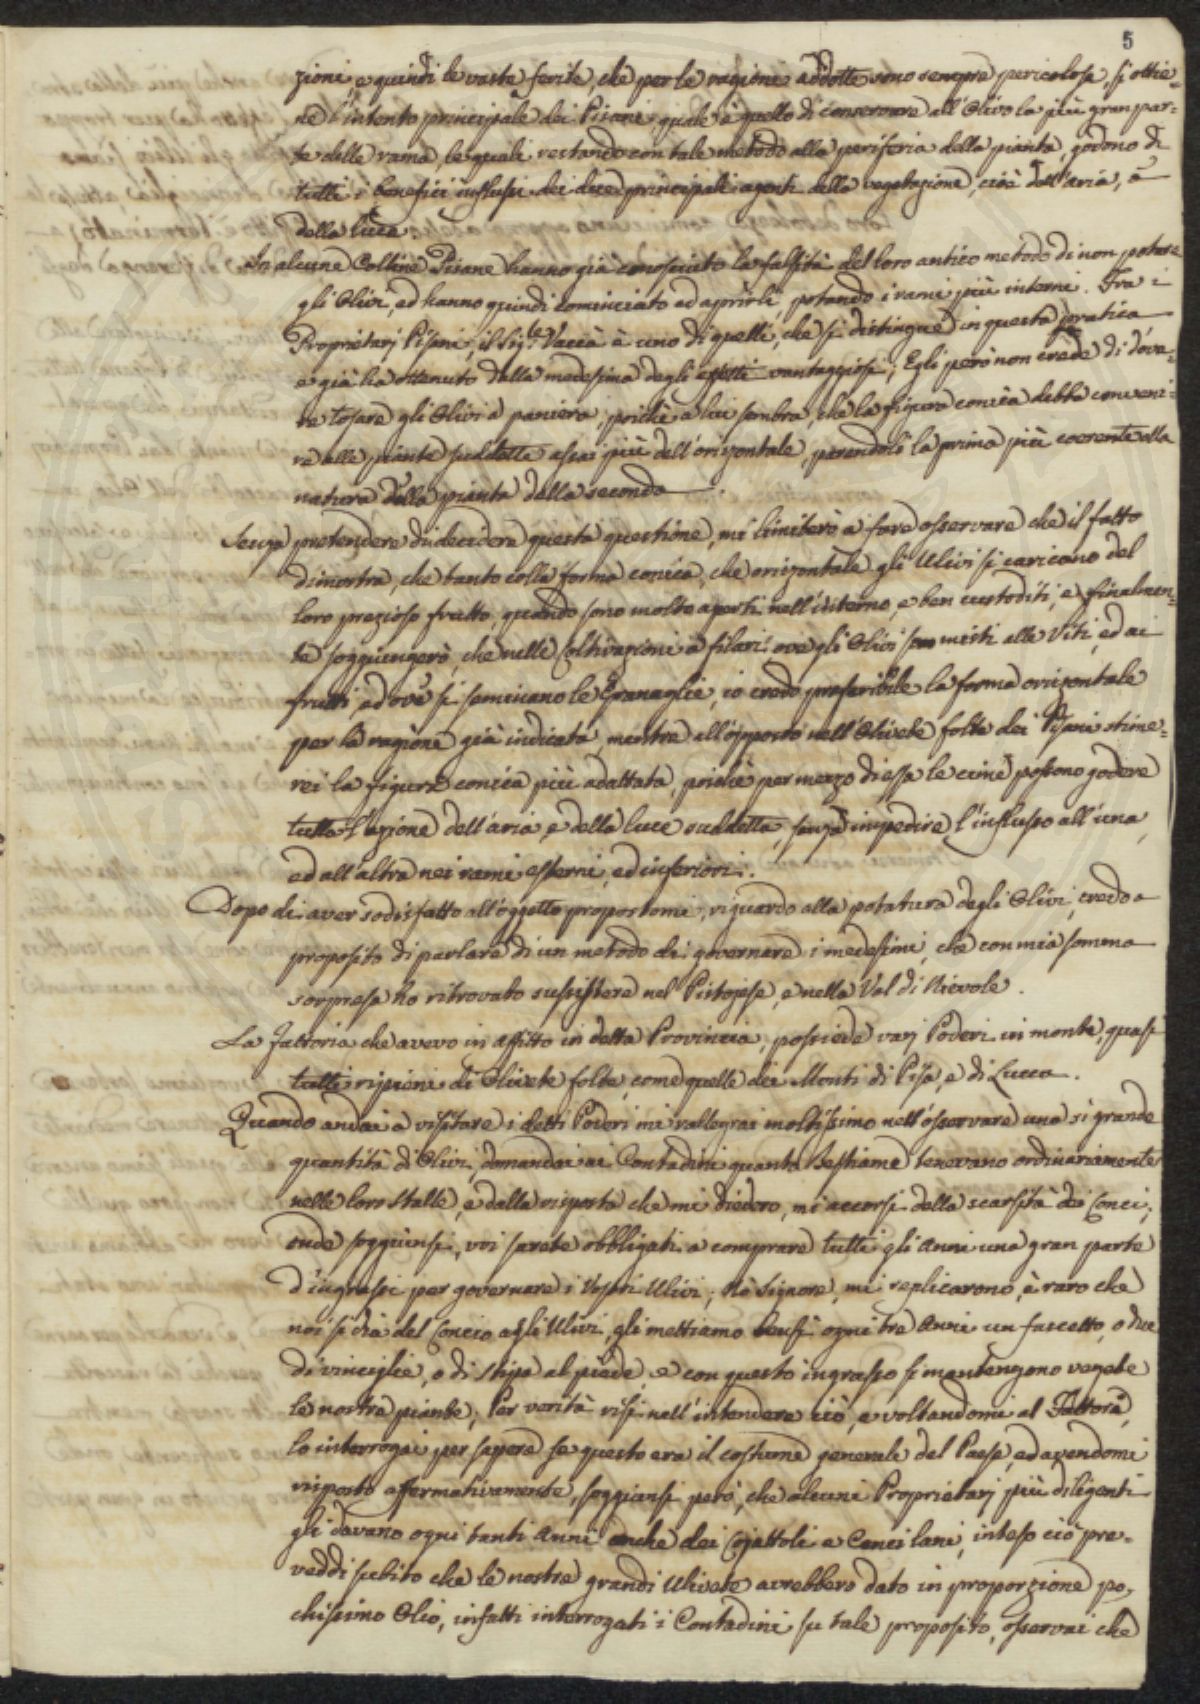 5
zioni, e quindi le vaste ferite, che per la ragione addotta sono sempre pericolose, si ottie-
ne l'intento principale dei Pisani, quale è quello di conservare all'Olivo la più gran par-
te delle rama, le quali restando con tale metodo alla periferia della pianta, godono di
tutti i benefici influssi dei due principali agenti della vegetazione, cioè dell'aria, e
della luce.
In alcune Colline Pisane hanno già conosciuto la falsità del loro antico metodo di non potare
gli Olivi, ed hanno quindi cominciato ad aprirli, potando i rami più interni. Tra i
Proprietarj Pisani, il Sig.re Vaccà è uno di quelli, che si distingue in questa pratica
e già ha ottenuto dalla medesima degli effetti vantaggiosi; Egli però non crede di dove-
re tosare gli Olivi a paniera, poichè a lui sembra, che la figura conica debba conveni-
re alle piante suddette assai più dell'orizontale, parendoli la prima più coerente alla
natura della pianta della seconda.
Senza pretendere di decidere questa questione, mi limiterò a fare osservare che il fatto
dimostra, che tanto colla forma conica, che orizontale gli Ulivi si caricano del
loro prezioso frutto, quando sono molto aperti nell'interno, e ben custoditi, e finalmen-
te soggiungerò, che nelle Coltivazioni a filari ove gli Olivi son misti alle Viti, ed ai
frutti, ed ove si seminano le Granaglie, io credo preferibile la forma orizontale
per la ragione già indicata, mentre all'opposto nell'Olivete folte dei Pisani stime-
rei la figura conica più adattata, poichè per mezzo di essa le cime possono godere
tutta l'azione dell'aria, e della luce suddetta, senza impedire l'influsso all'una,
ed all'altra nei rami esterni, ed inferiori.
Dopo di aver sodisfatto all'oggetto propostomi, riguardo alla potatura degli Olivi, credo a
proposito di parlare di un metodo di governare i medesimi, che con mia somma
sorpresa ho ritrovato sussistere nel Pistojese, e nella Val di Nievole.
La Fattoria che avevo in affitto in detta Provincia, possiede varj Poderi in monte, quasi
tutti ripieni di Olivete folte, come quelle dei Monti di Pisa, e di Lucca.
Quando andai a visitare i detti Poderi mi rallegrai moltissimo nell'osservare una si grande
quantità di Olivi, domandai ai Contadini quanto Bestiame tenevano ordinariamente
nelle loro stalle, e dalla risposta che mi diedero, mi accorsi della scarsità dei Conci,
onde soggiunsi, voi sarete obbligati a comprare tutti gli Anni una gran parte
d'ingrassi per governare i Vostri Ulivi; Nò Signore, mi replicarono, è raro che
noi si dia del Concio agli Ulivi, gli mettiamo bensì ogni tre Anni un fascetto, o due
di vinciglie, o di stipa al piede, e con questo ingrasso si mantengono vegete
le nostre piante; Per verità risi nell'intendere ciò, e voltandomi al Fattore,
lo interrogai per sapere se questo era il costume generale del Paese, ed avendomi
risposto affermativamente, soggiunse però, che alcuni Proprietarj più diligenti
gli davano ogni tanti Anni anche dei Cojattoli e Cenci lani, inteso ciò pre-
veddi subito che le nostre grandi Ulivete avrebbero dato in proporzione po-
chissimo Olio, infatti interrogati i Contadini su tale proposito, osservai che